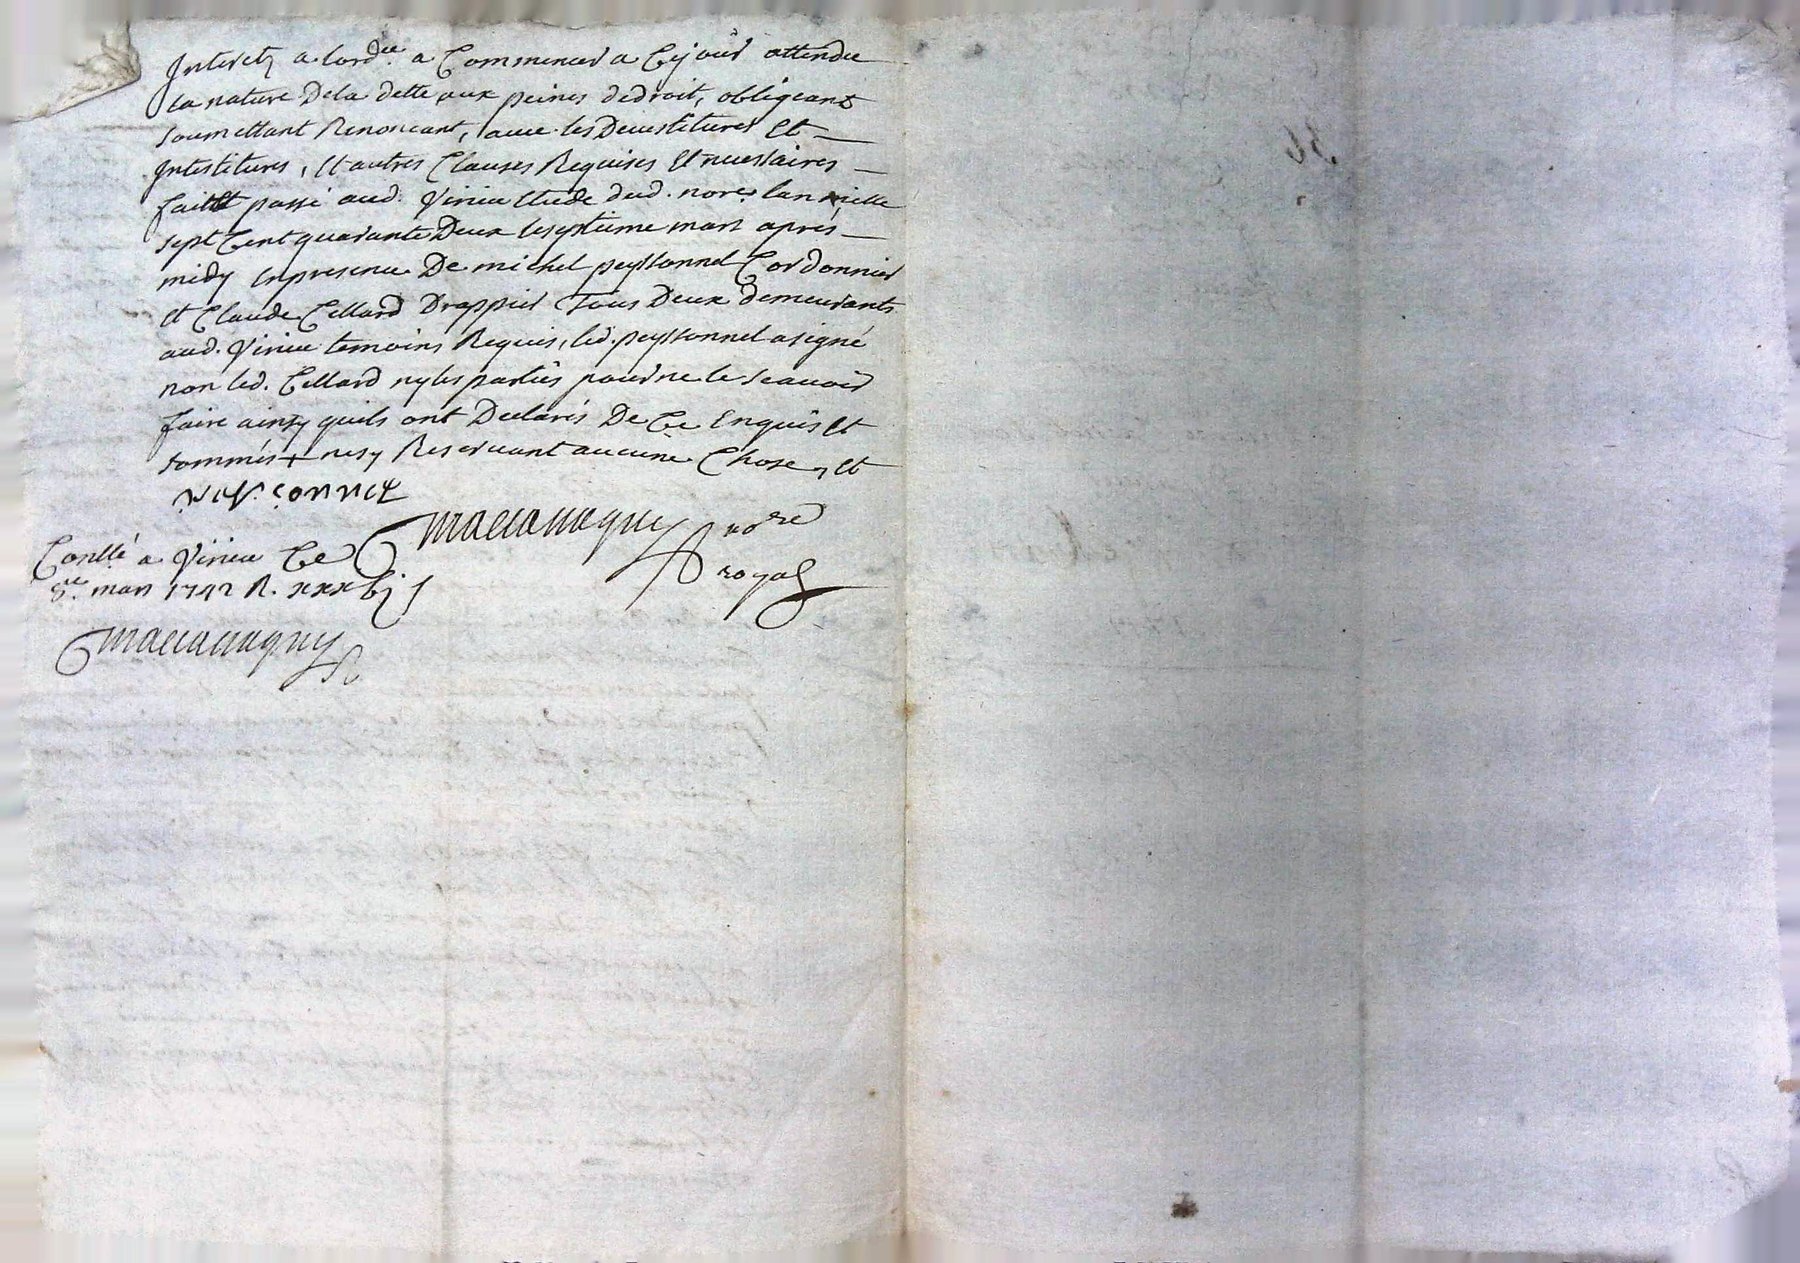 Interetz a lord.re a Commencer a Cejour attendu
la nature Dela dette aux peines dedroit, obligeant
soumettant Renonceant, avec les Devestitures Et
Investitures, Et autres Clauses Requises Et necessaires
fait Et passé aud. Virieu Etude dud. nore. lan mille
sept Cent quarante Deux le septieme mars aprés
midy en presence De michel peyssonnel Cordonnier
Et Claude Cellard Drappier tous Deux demeurants
aud. Virieu temoins Requis, led. peyssonnel a signé
non led. Cellard ny les parties pour ne le scavoir
faire ainsy quils ont Declarés De Ce Enquis Et
sommés + ne sy Reservant aucune Chose, Et
peissonnel
nore
royal
Conllé a Virieu Ce
8.e mars 1742 R. xxxvj s